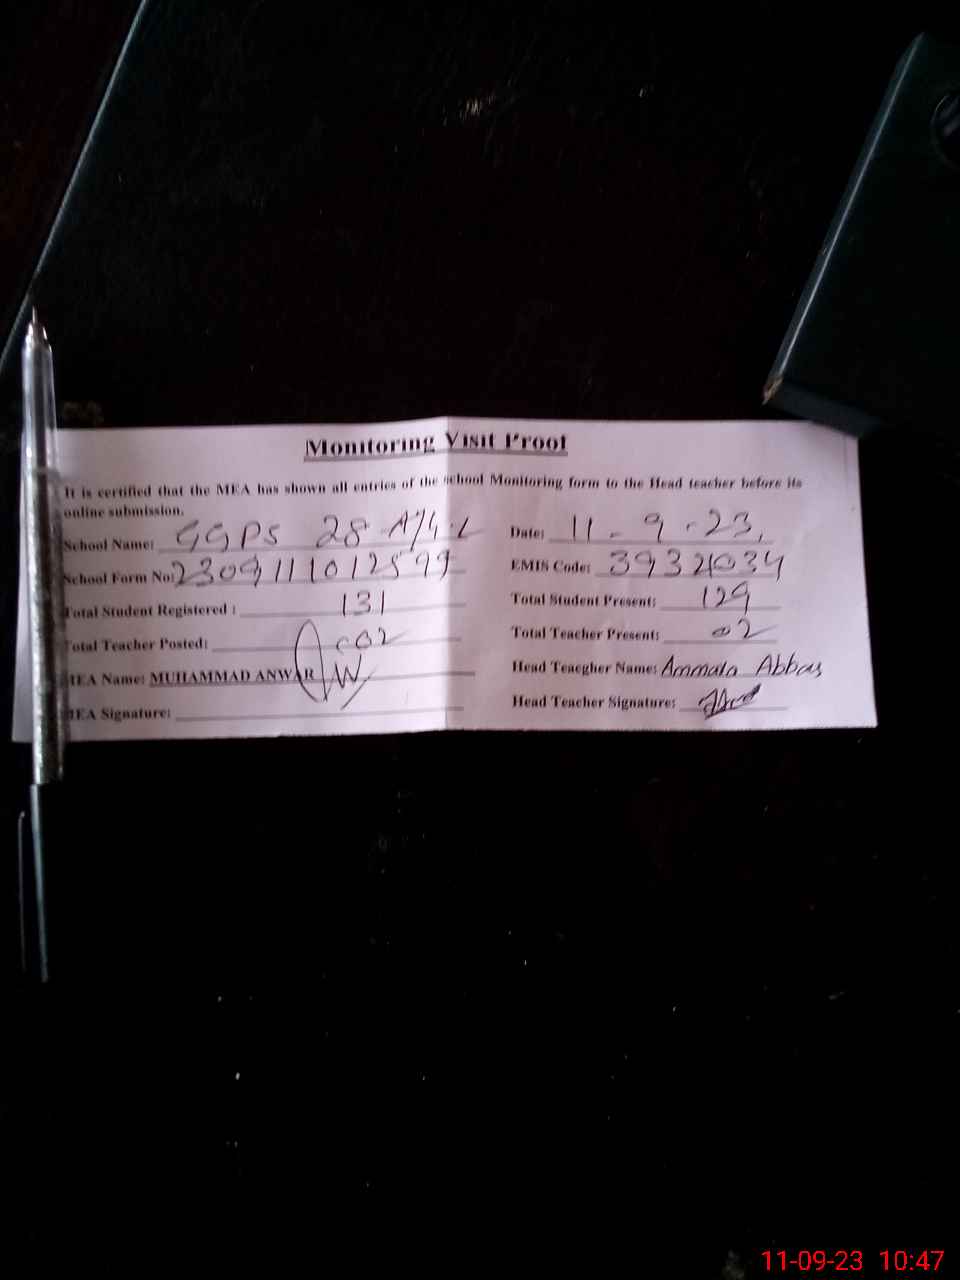 Monitoring Visit Proof
It is certified that the MEA has shown all entries of the school Monitoring form to the Head teacher before its
online submission.
School Name: GGPS 28-A/4.L Date: 11-9-23,
School Form No: 23091110125 99 EMIS Code: 39321034
Total Student Registered : 131 Total Student Present: 129
Total Teacher Posted: 02 Total Teacher Present: 02
MEA Name: MUHAMMAD ANWAR Head Teacgher Name: Ammala Abbas
MEA Signature: Head Teacher Signature:
11-09-23 10:47